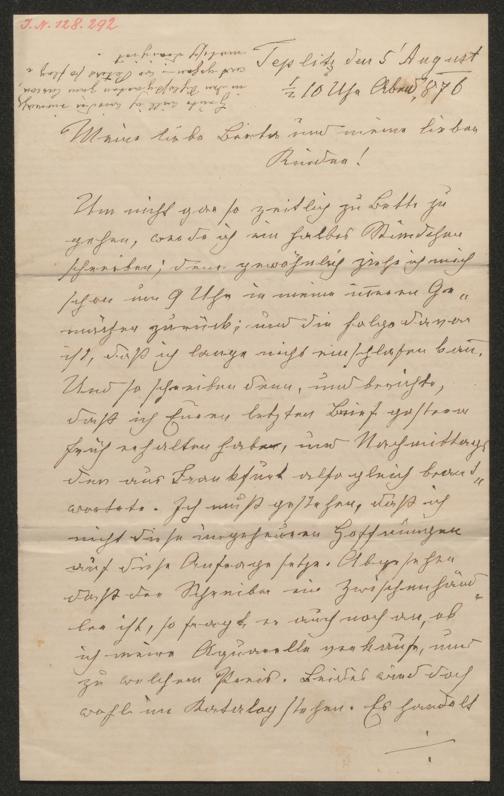 J. N. 128.292
Teplitz den 5' August
½ 10 Uhr Abend, 876
Meine liebe Berta und meine lieben
Kinder!
Um nicht gar so zeitlich zu Bette zu
gehen, werde ich ein halbes Stündchen
schreiben; denn gewöhnlich ziehe ich mich
schon um 9 Uhr in meine inneren Ge„
mächer zurück; und die Folge davon
ist, daß ich lange nicht einschlafen kan̄.
Und so schreiben denn, und berichte,
daß ich Euren letzten Brief gestern
früh erhalten habe, und Nachmittags
den aus Frankfurt alsogleich beant„
wortete. Ich muß gestehen, daß ich
nicht diese ungeheuren Hoffnungen
auf diese Anfrage setze. Abgesehen
daß der Schreiber ein Zwischenhänd„
ler ist, so fragt er auch noch an, ob
ich meine Aquarelle verkaufe, und
zu welchem Preis. Beides wird doch
wohl im Katalog stehen. Es handelt